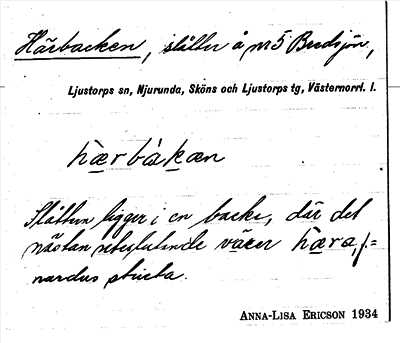 Härbacken, slåtter å nr 5 Bredsjön,
Ljustorps sn, Njurunda, Sköns och Ljustorps tg, Västernorrl. l.
hærbàkæn
Slåttern ligger i en backe, där det
nästan uteslutande växer hæra, f.=
nardus stricta.
ANNA-LISA ERICSON 1934